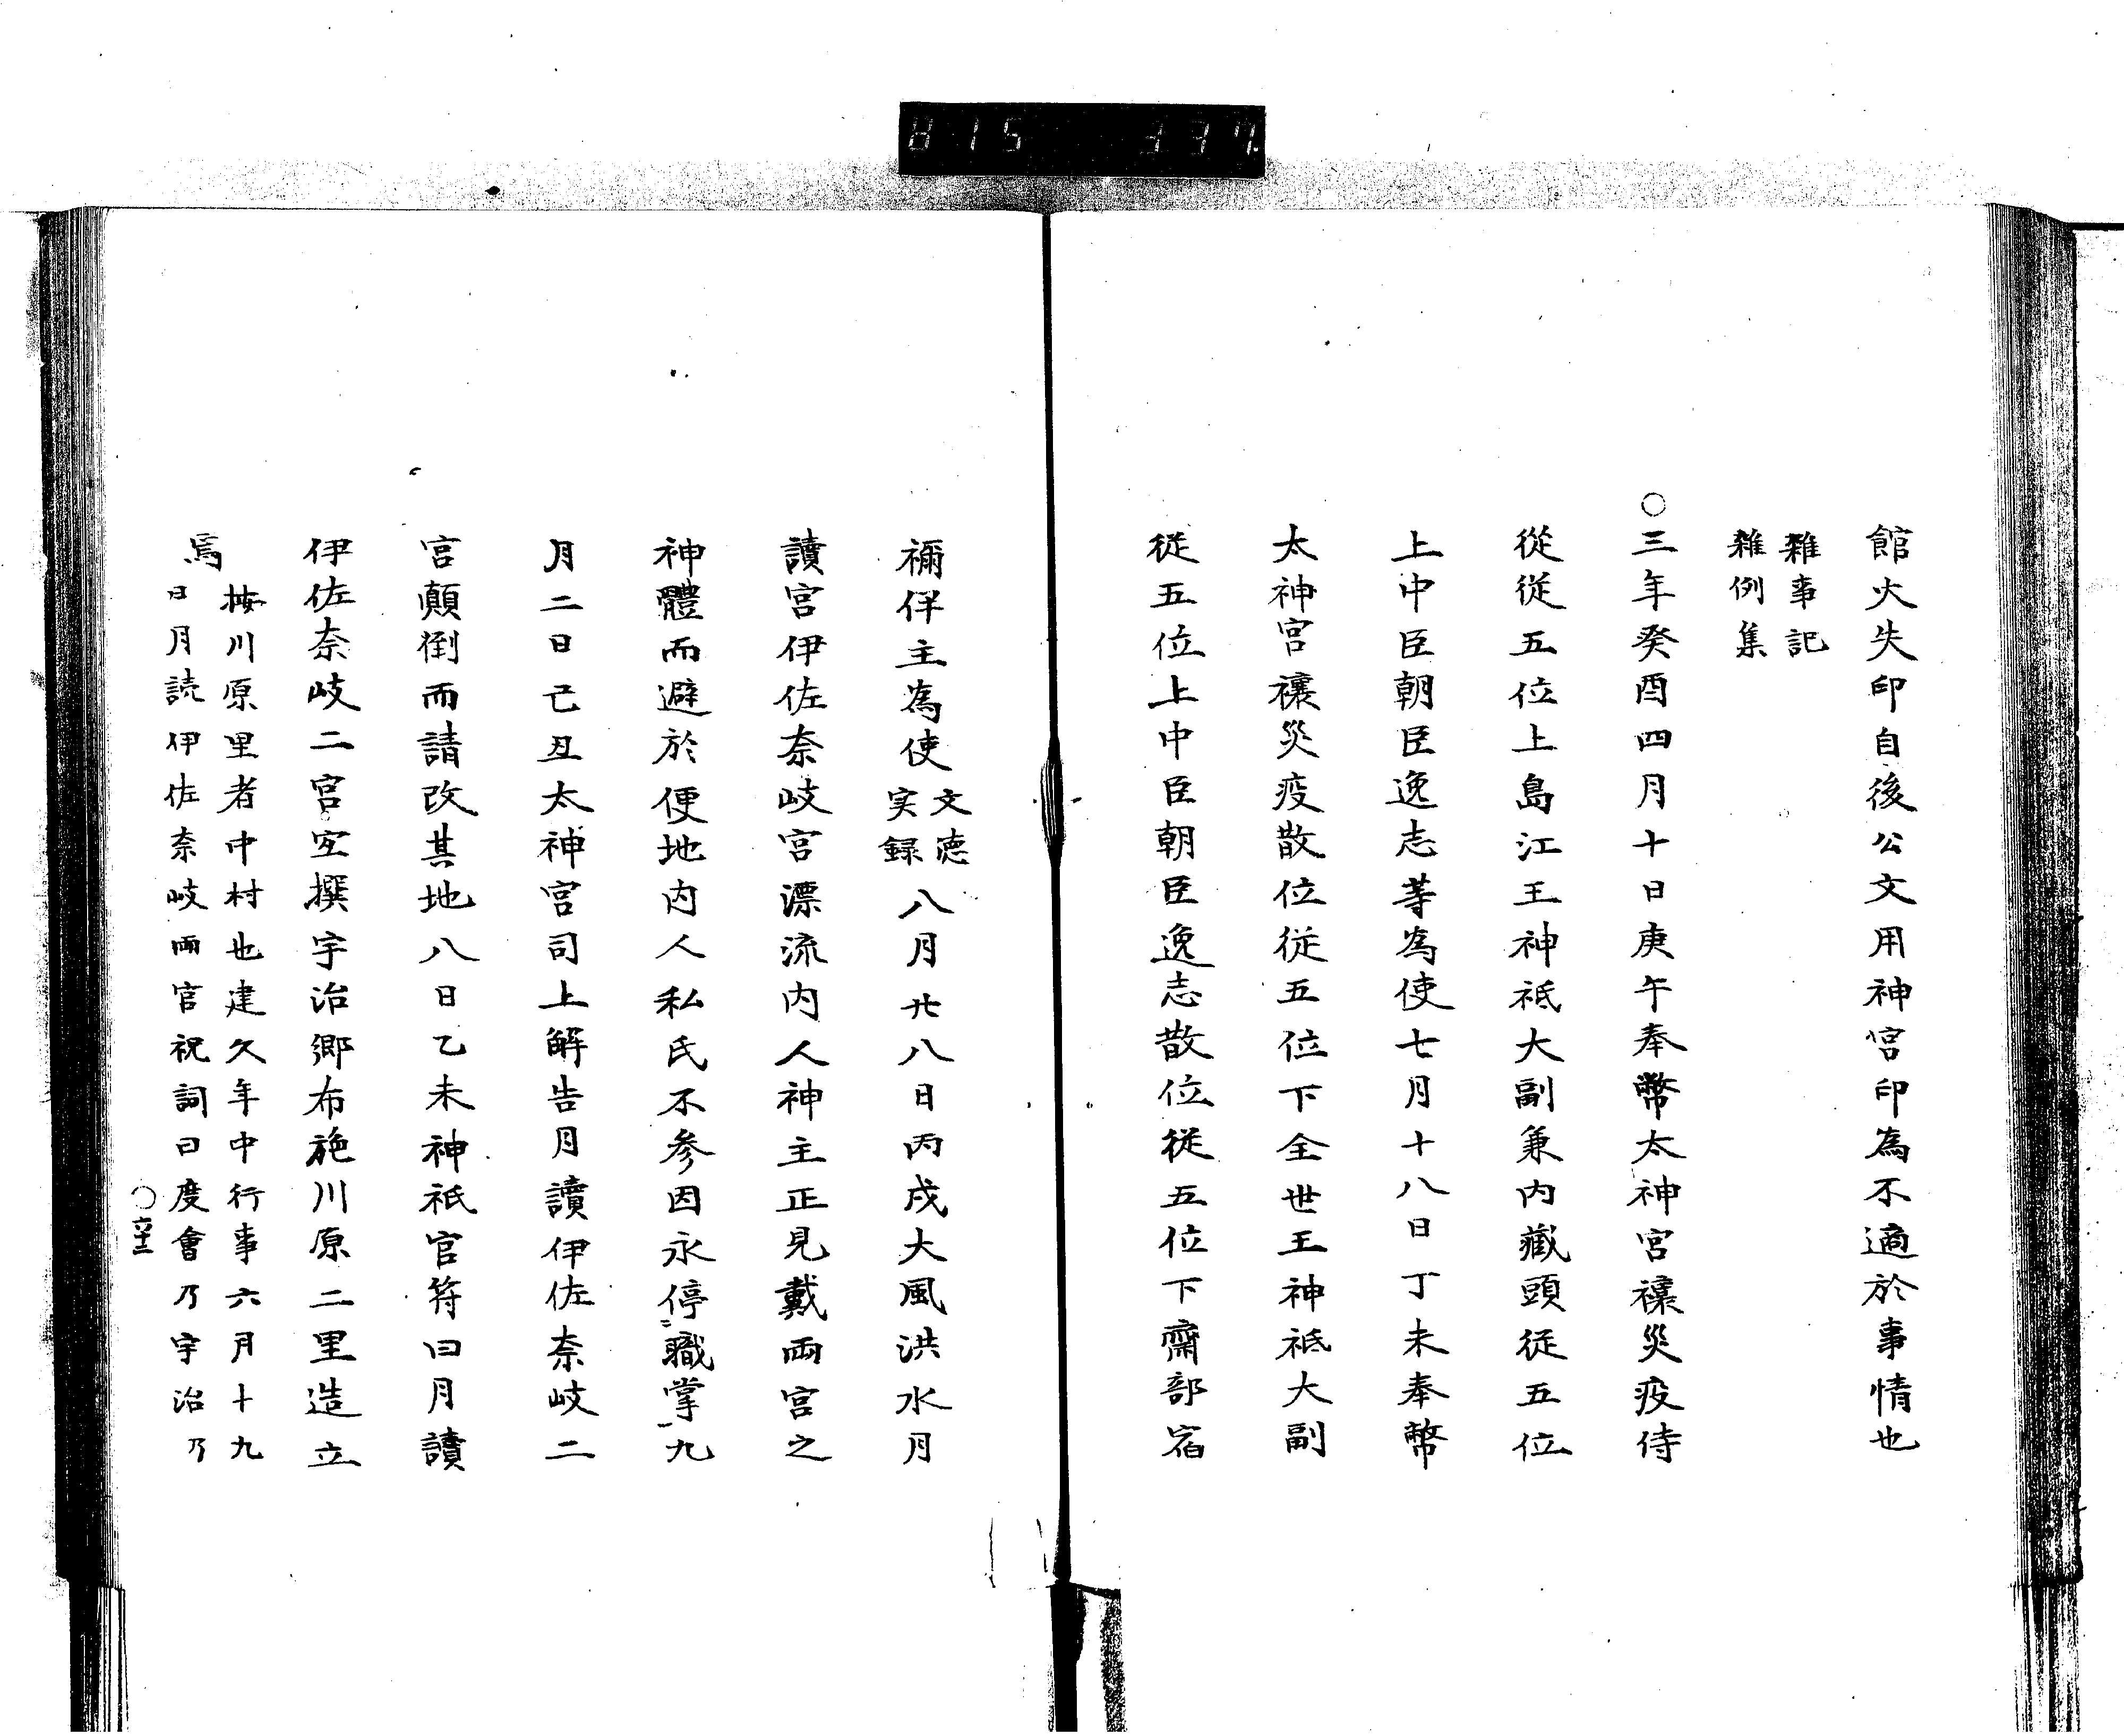 815 337
館火失印自後公文用神宮印為不適於事情也
雜事記
雜例集
○三年癸酉四月十日庚午奉幣太神宮禳災疫侍
從從五位上島江王神祇大副兼內藏頭從五位
上中臣朝臣逸志等為使七月十八日丁未奉幣
太神宮禳災疫散位從五位下全世王神祇大副
從五位上中臣朝臣逸志散位從五位下齋部宿
禰伴主為使
文徳
実録
八月廿八日丙戌大風洪水月
讀宮伊佐奈岐宮漂流内人神主正見戴兩宮之
神體而避於便地内人私氏不参因永停職掌九
月二日己丑太神宮司上解告月讀伊佐奈岐二
宮顛倒而請改其地八日乙未神祇官符曰月讀
伊佐奈岐二宮宜撰宇治鄉布施川原二里造立
焉
按川原里者中村也建久年中行事六月十九
日月読伊佐奈岐兩官祝詞曰度會乃宇治乃
○六十二